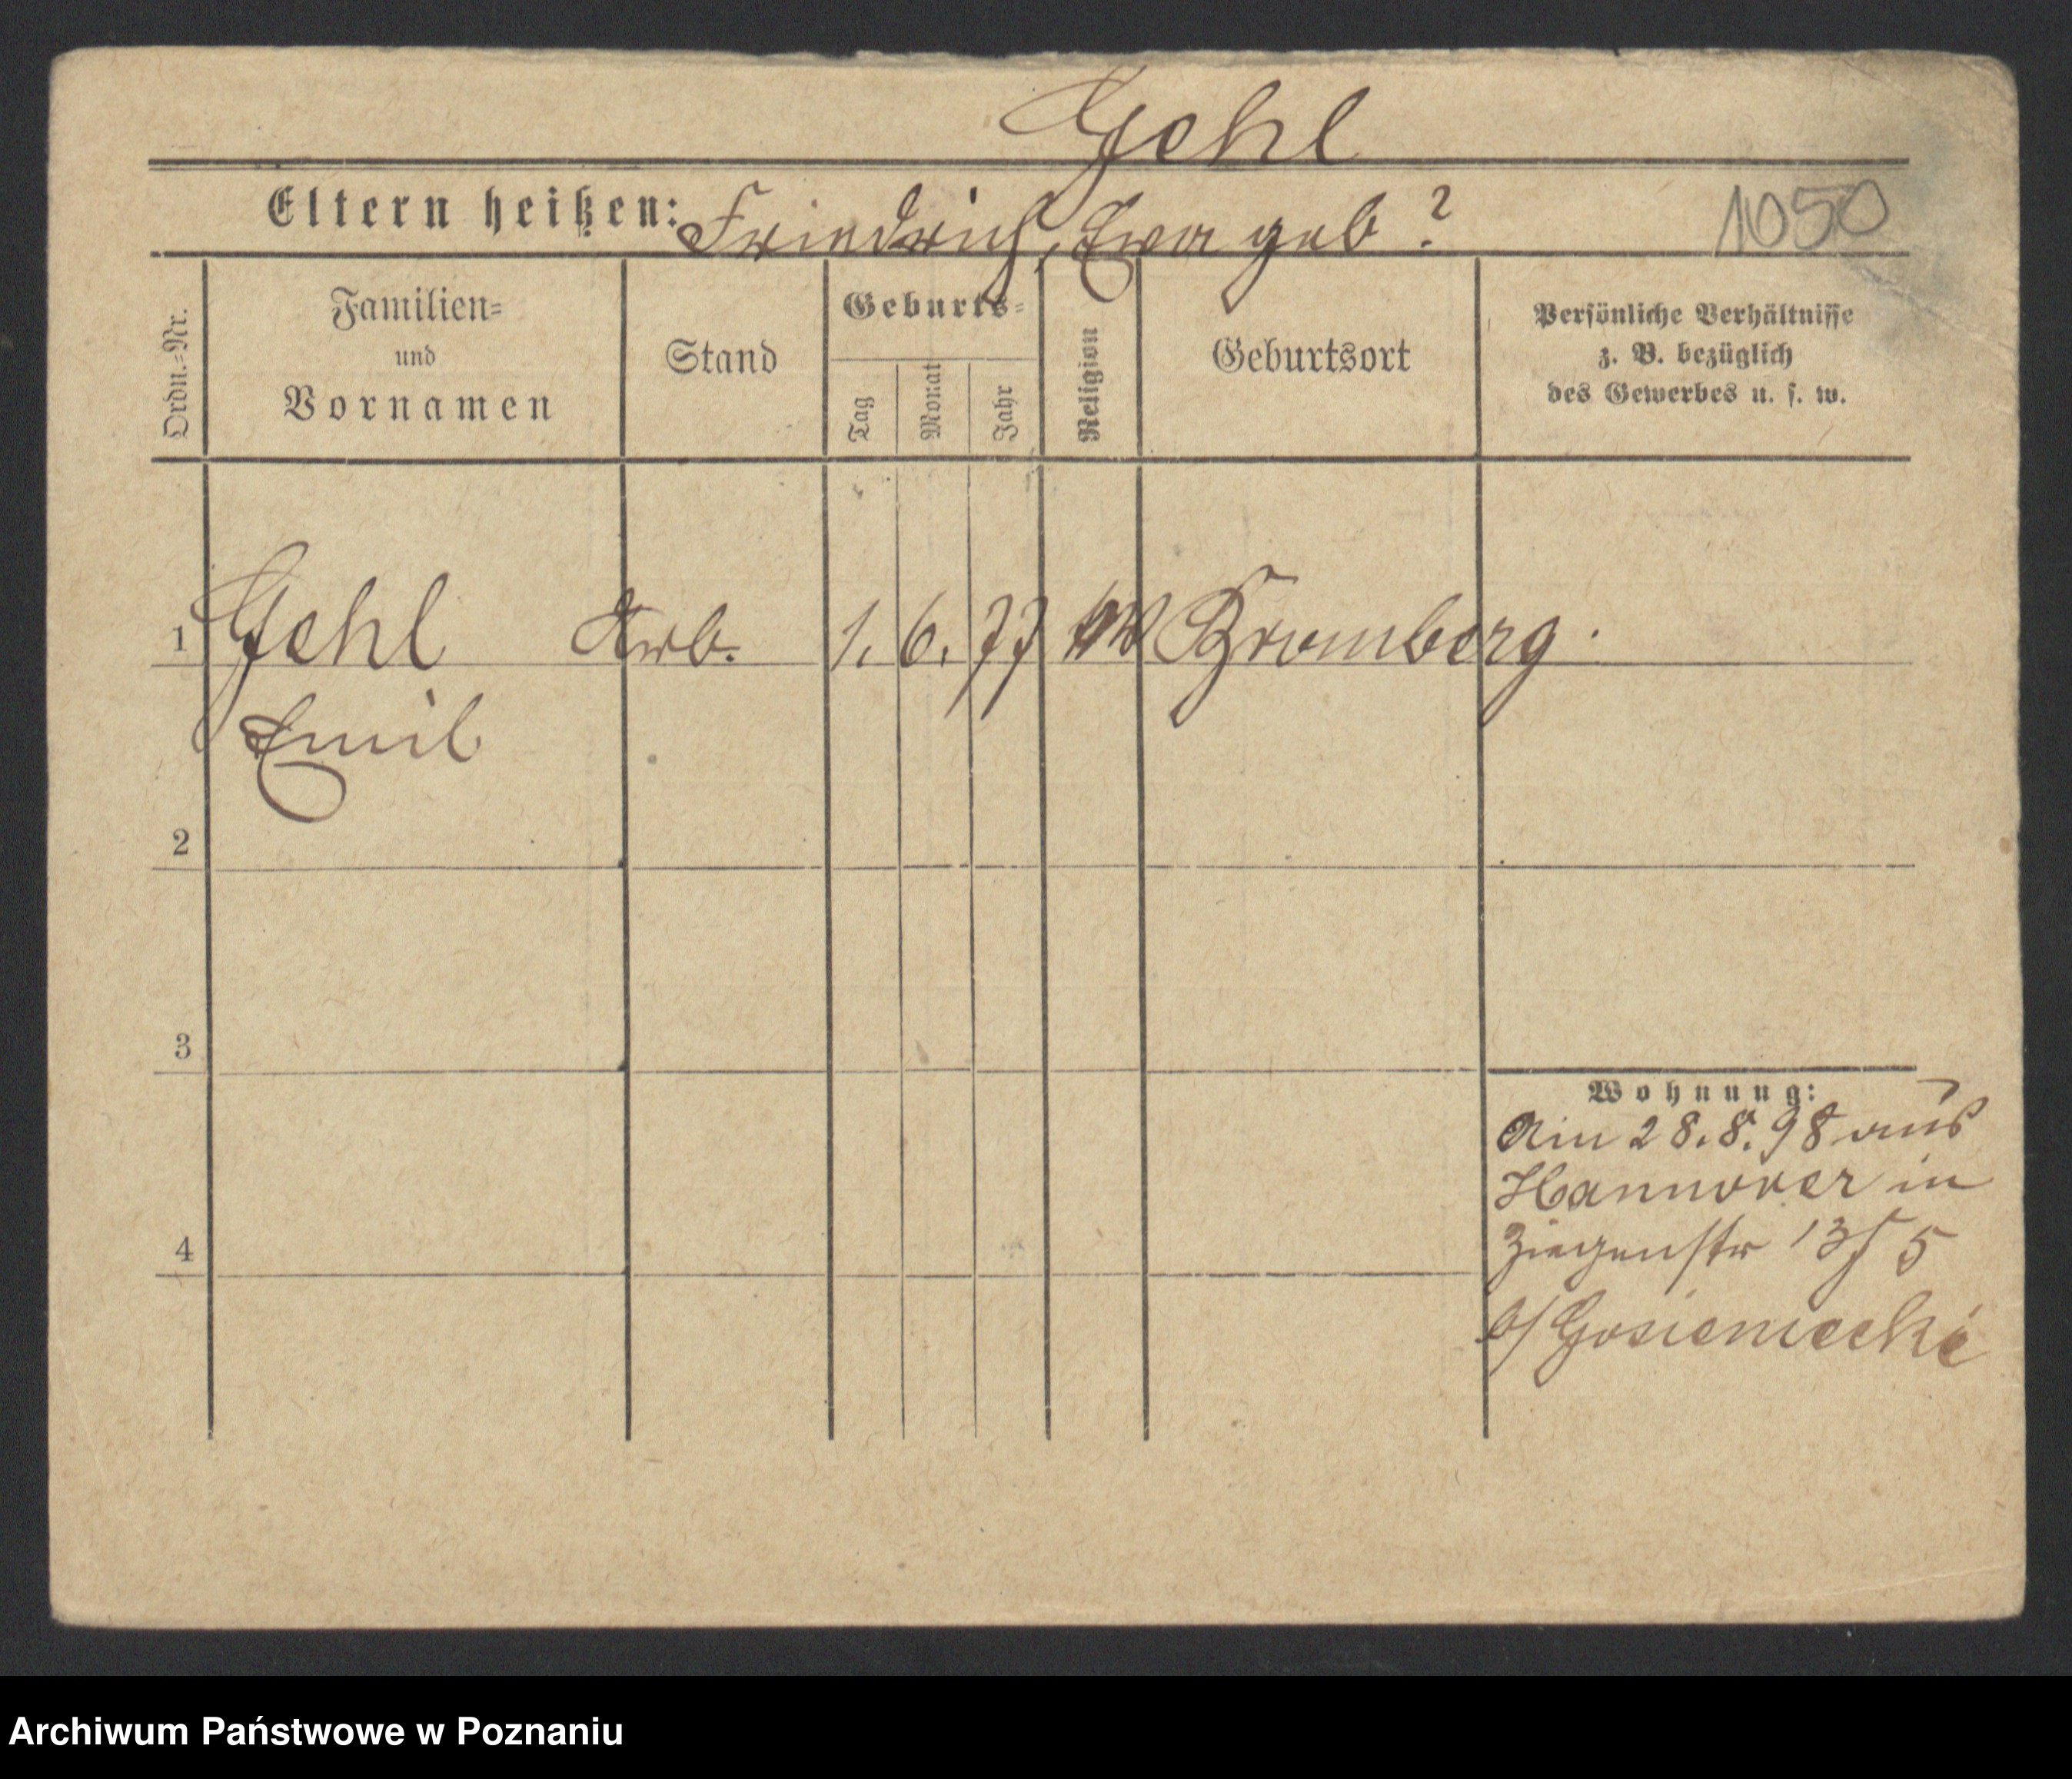 Gehl
Eltern heißen: Friedrich, Ewa geb ?
1050
Ordn.-Nr.
Familien-
und
Vornamen
Stand
Geburts-
Tag
Monat
Jahr
Religion
Geburtsort
Persönliche Verhältnisse
z. B. bezüglich
des Gewerbes u. s. w.
1 Gehl Arb. 1. 6. 77 Bromberg.
Emil
2
3
4
Wohnung:
Am 28.8.98 aus
Hannover in
Ziegenstr 13/5
b/ Gosieniecki
Archiwum Państwowe w Poznaniu